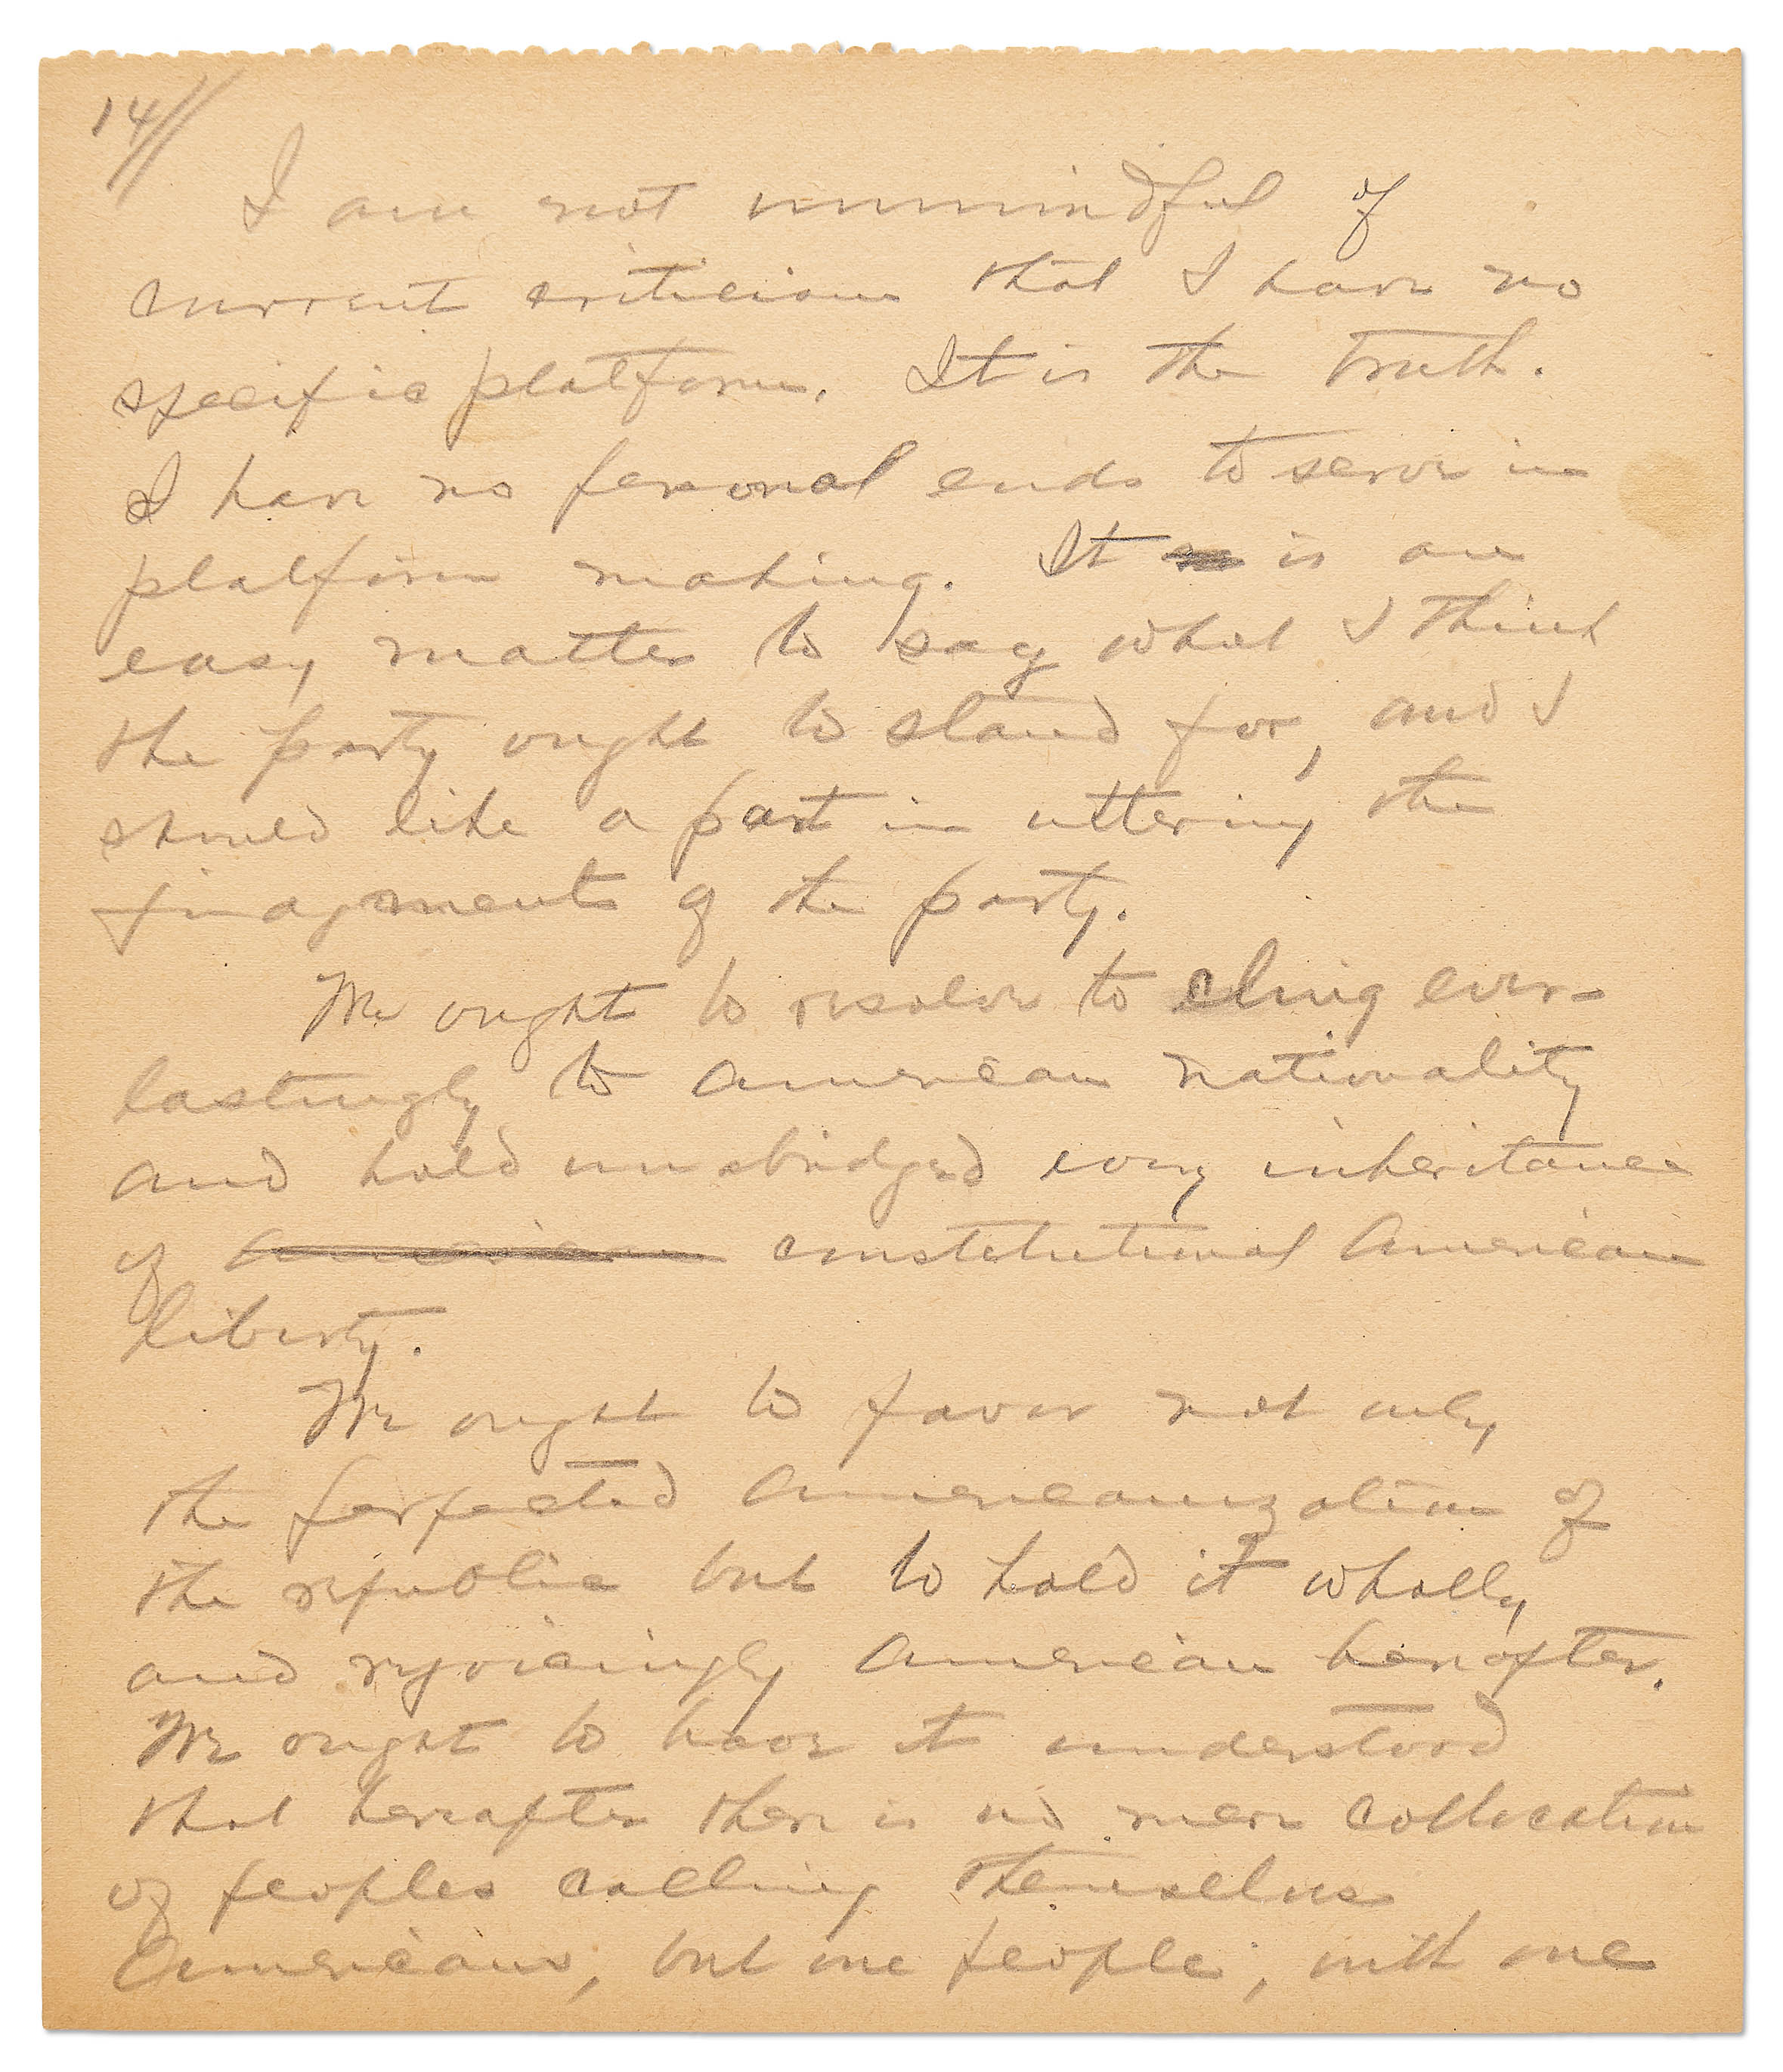 14
I am not unmindful of
current criticism that I have no
specific platform. It is the truth.
I have no personal ends to serve in
platform making. It is an
easy matter to say what I think
the party ought to stand for, and I
should like a part in uttering the
judgments of the party.
We ought to resolve to cling ever-
lastingly to American nationality
and hold unabridged every inheritance
of American constitutional American
liberty.
We ought to favor not only
the perfected Americanization of
the republic but to hold it wholly
and rejoicingly American hereafter.
We ought to have it understood
that hereafter there is no mere collocation
of peoples calling themselves
Americans, but one people, with one